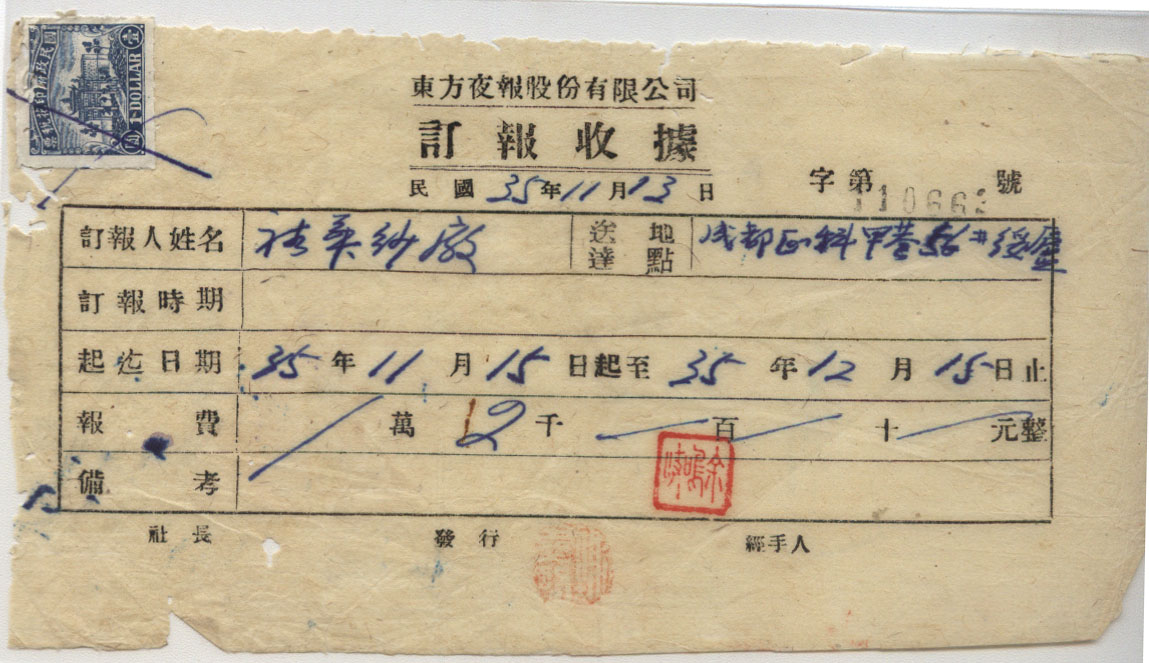 國民政府印花稅票
壹 1 DOLLAR 圓
東方夜報股份有限公司
訂報收據
民國35年11月13日
字第 110663 號
訂報人姓名 裕華紗廠 送達地點 成都正科甲巷56#
訂報時期
起迄日期 35年11月15日起至35年12月15日止
報費 萬2千 百 十 元整
備考
社長 發行 經手人